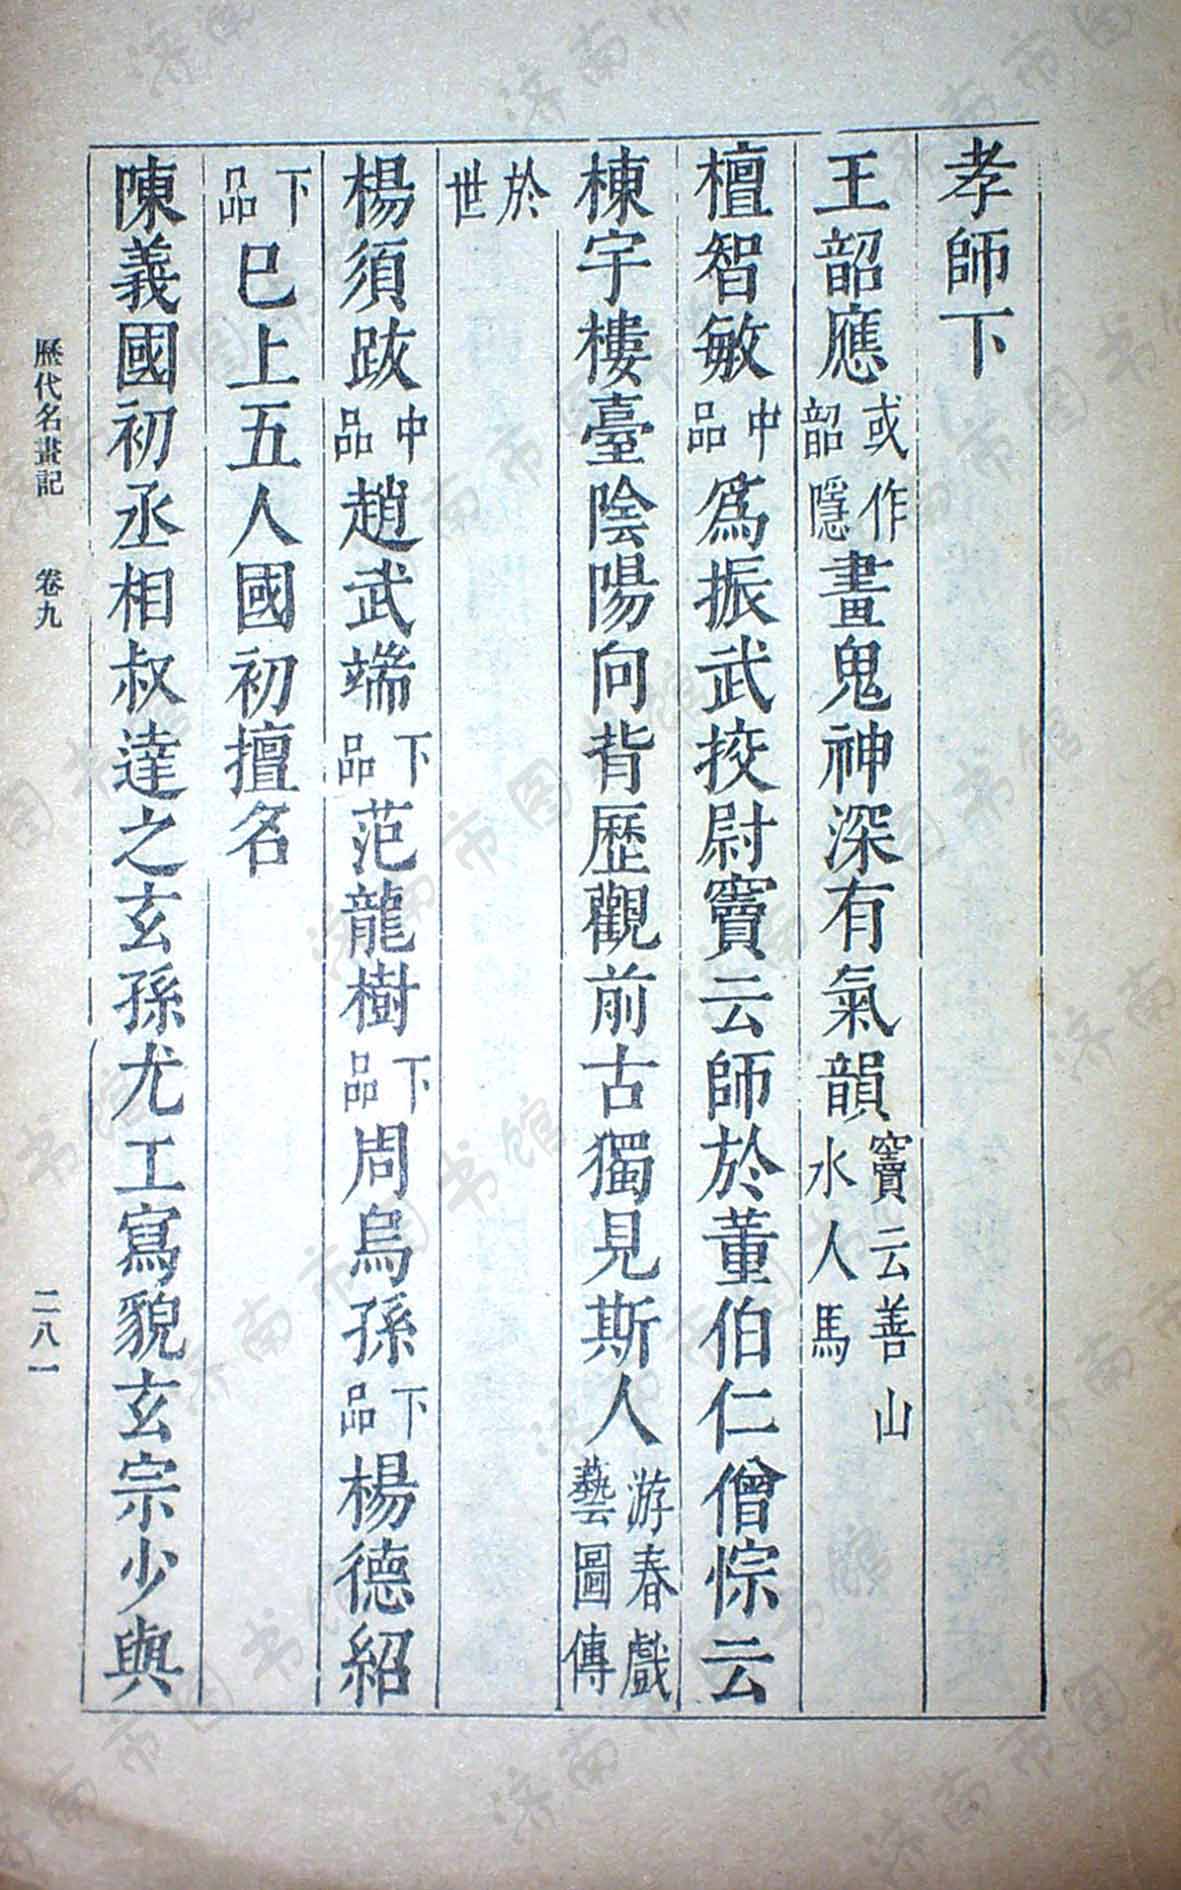 孝師下
王韶應或作韶隱畫鬼神深有氣韻竇云善山水人馬
檀智敏中品爲振武挍尉竇云師於董伯仁僧悰云
棟宇樓臺陰陽向背歷觀前古獨見斯人游春戲藝圖傳
於世
楊須跋中品趙武端下品范龍樹下品周烏孫下品楊德紹
下品已上五人國初擅名
陳義國初丞相叔達之玄孫尤工寫貌玄宗少與
歷代名畫記 卷九 二八一
济南市图书馆